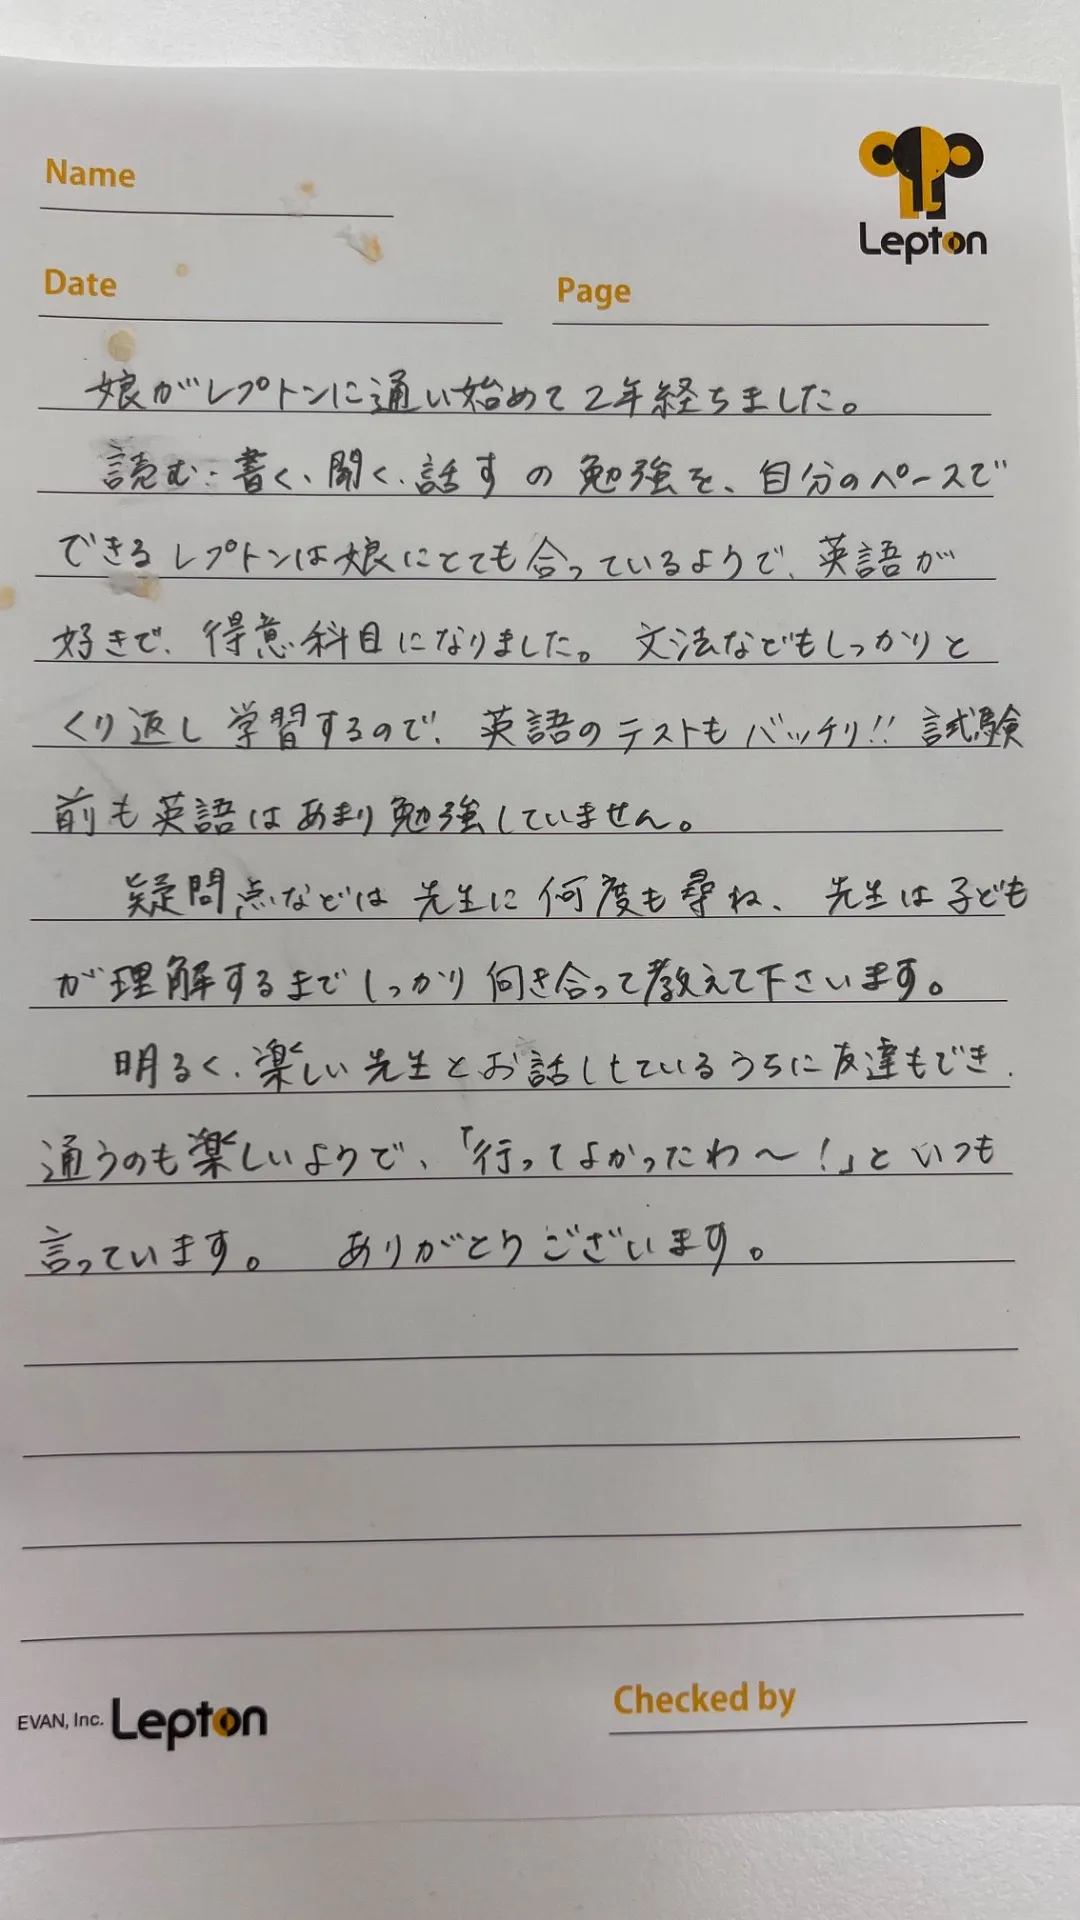 Name
Lepton
Date
Page
娘がレプトンに通い始めて2年経ちました。
読む・書く、聞く、話すの勉強を、自分のペースで
できるレプトンは娘にとても合っているようで、英語が
好きで、得意科目になりました。 文法などもしっかりと
くり返し学習するので、英語のテストもバッチリ!! 試験
前も英語はあまり勉強していません。
疑問点などは先生に何度も尋ね、先生は子ども
が理解するまでしっかり向き合って教えて下さいます。
明るく、楽しい先生とお話ししているうちに友達もでき、
通うのも楽しいようで、「行ってよかったわ〜!」といつも
言っています。 ありがとうございます。
EVAN, Inc. Lepton
Checked by